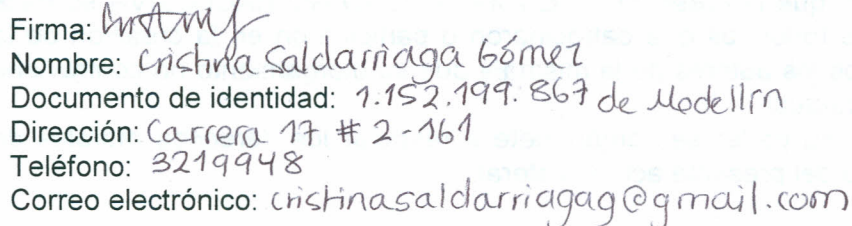 Firma:
Nombre: Cristina Saldarriaga Gómez
Documento de identidad: 1.152.199.867 de Medellín
Dirección: Carrera 17 # 2-161
Teléfono: 3219948
Correo electrónico: cristinasaldarriagag@gmail.com